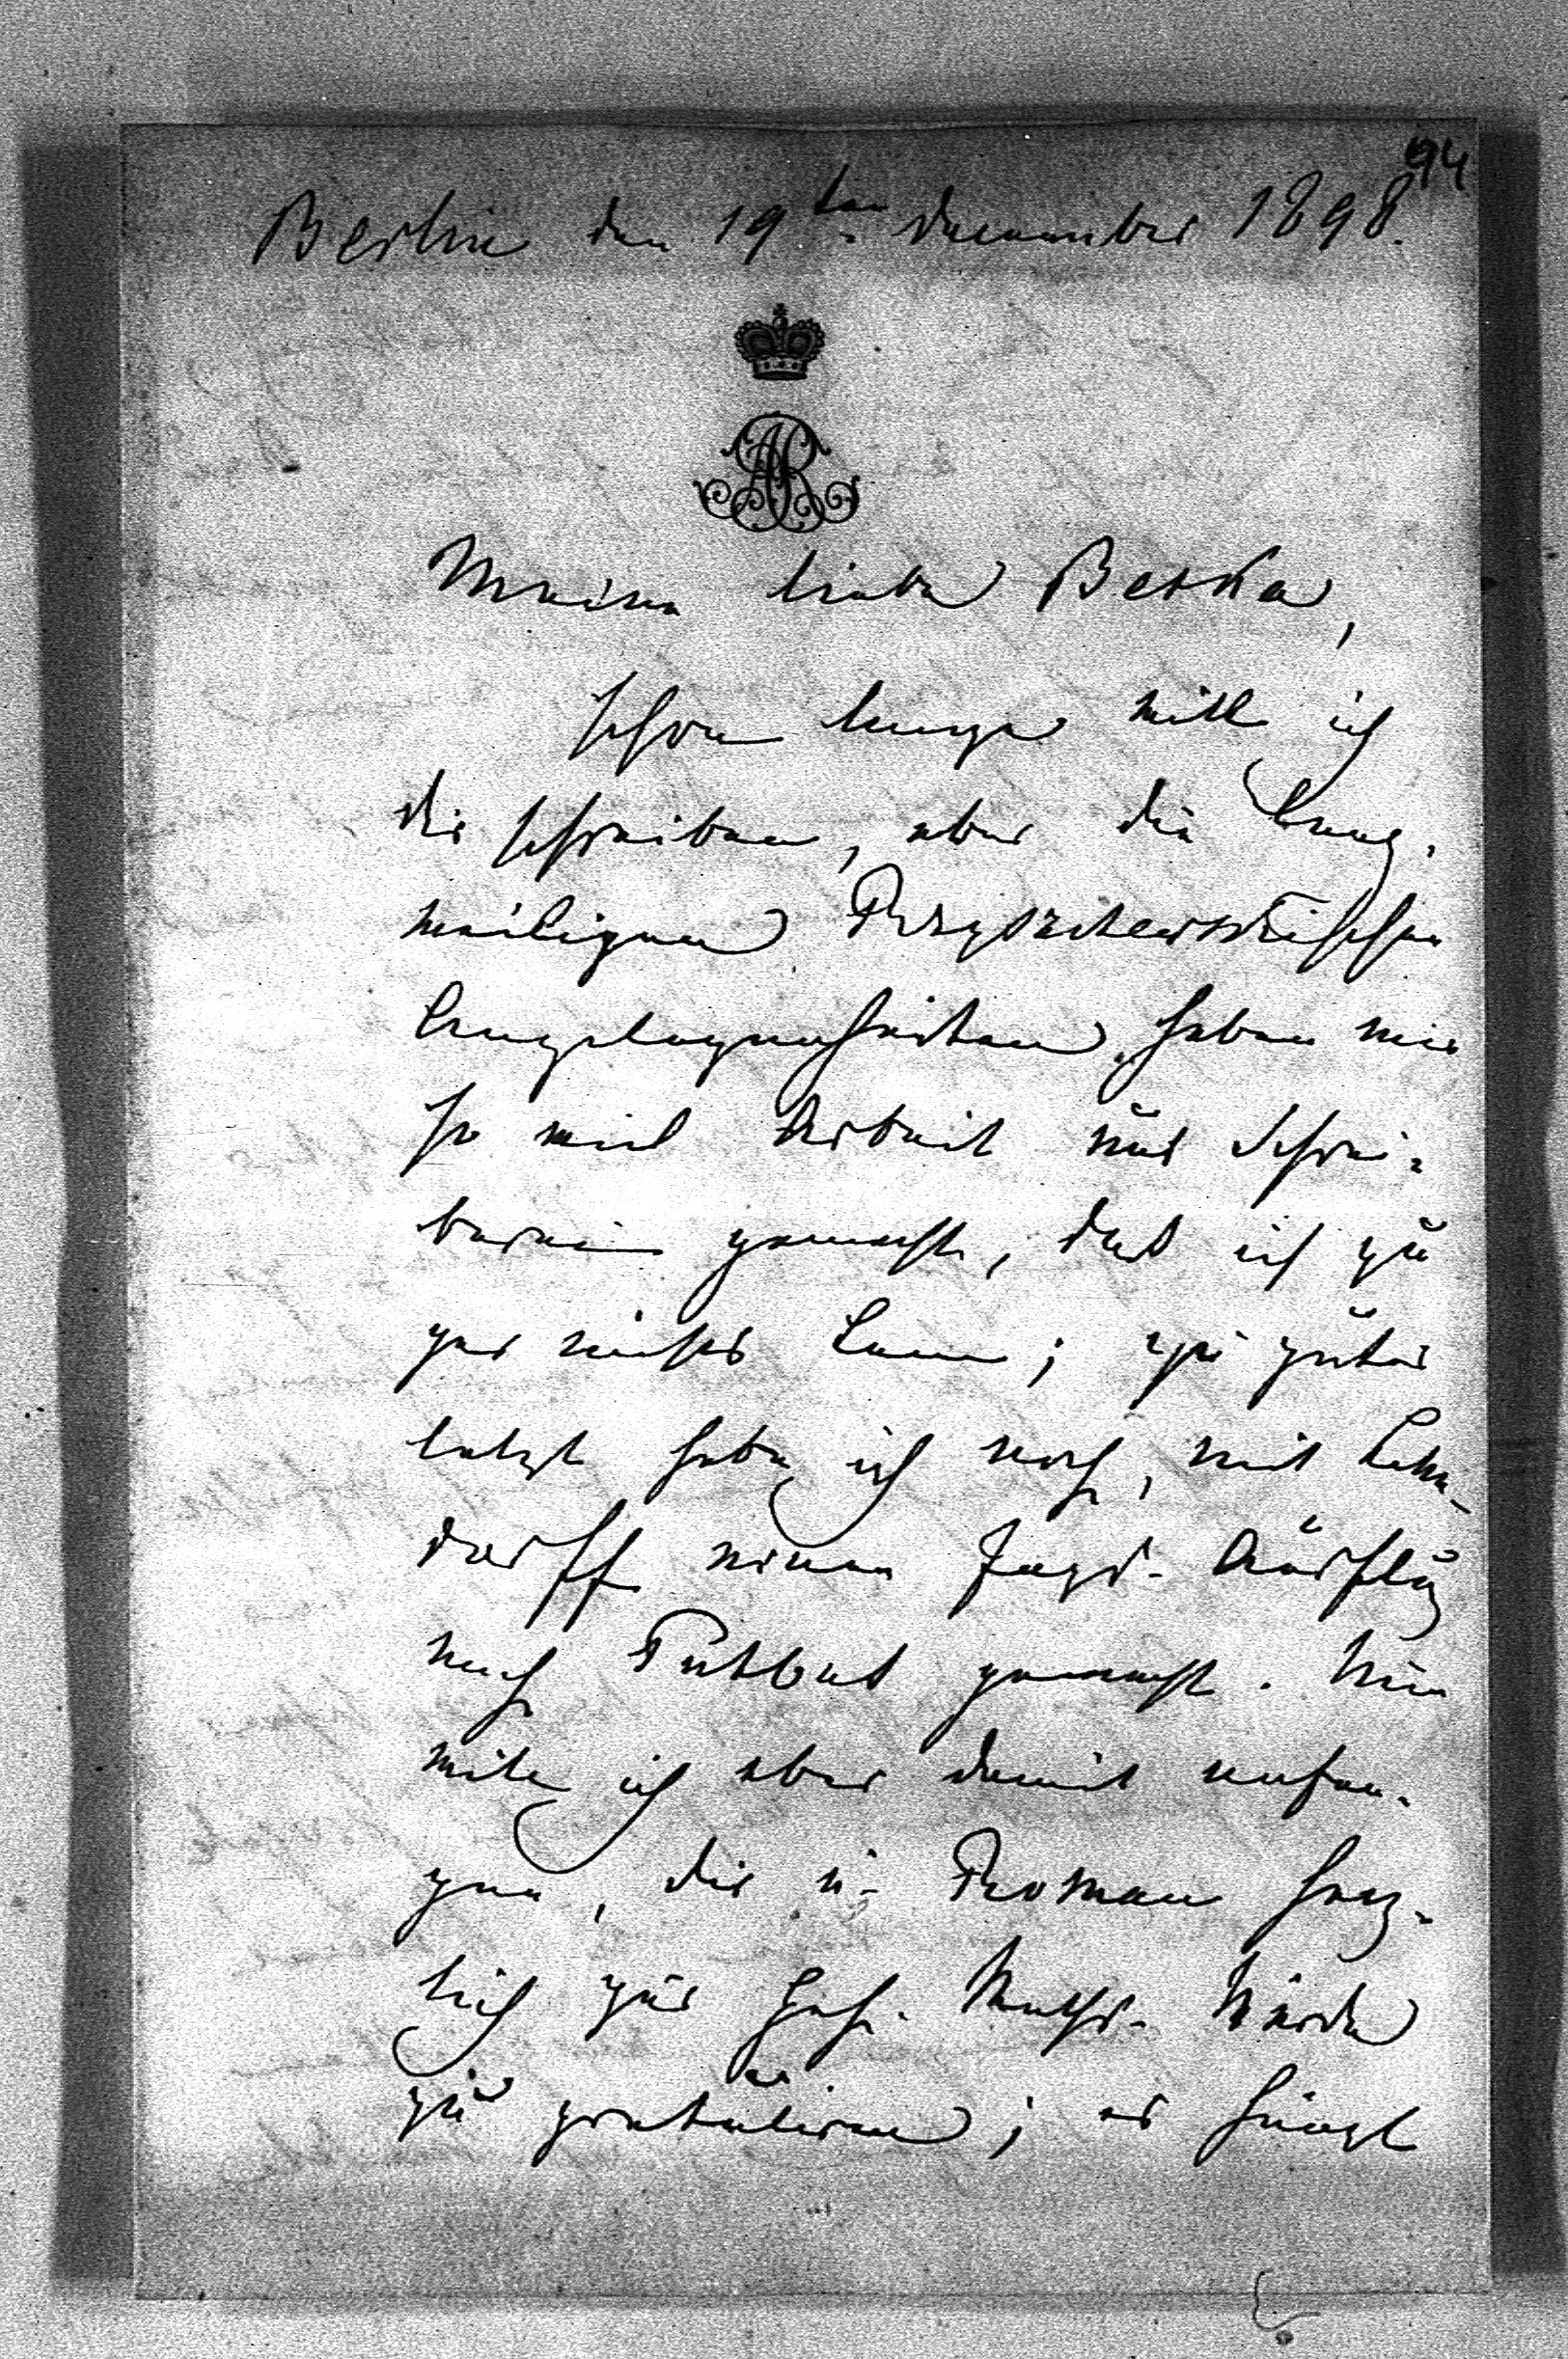 94
Berlin den 19ten December 1898.
AR
Meine liebe Betka,
schon lange will ich
dir schreiben, aber die lang-
weiligen
Angelegenheiten haben mir
so viel Arbeit und Schrei-
berei gemacht, daß ich zu
gar nichts kam; zu guter
letzt habe ich noch, mit Lehn-
dorff einen Jagd-Ausflug
nach Putbus gemacht. Nun
will ich aber damit anfan-
gen, dir u. Roman herz-
lich zur Geh. Raths-Würde
zu gratuliren; es